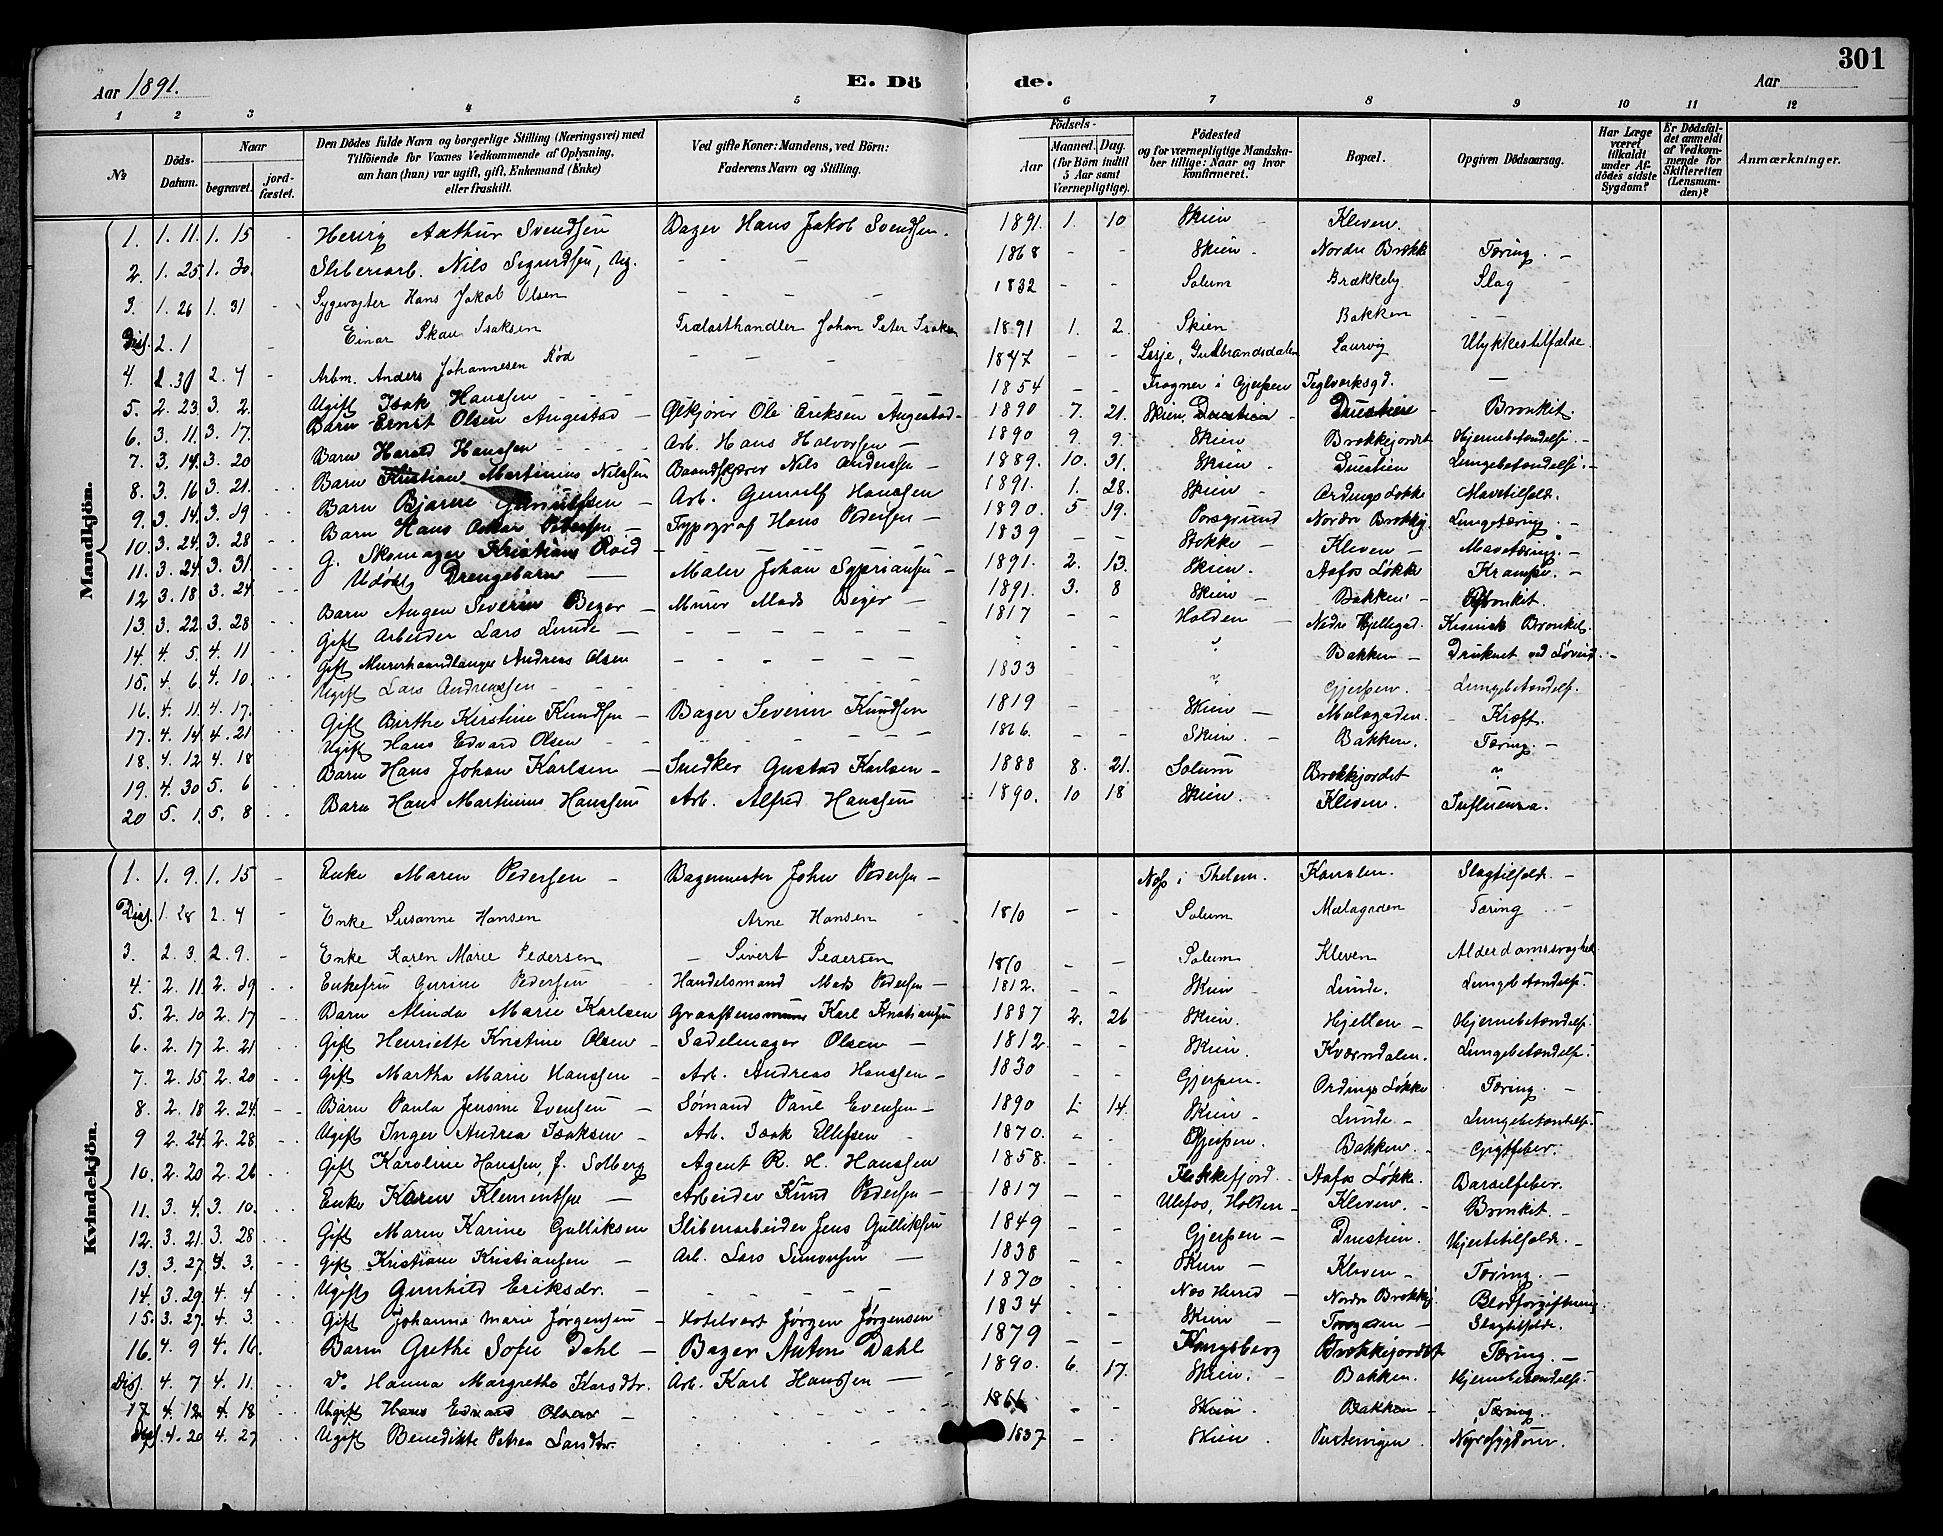 301
Aar 1891.
E. Dö de.
Aar
1 2 3 4 5 6 7 8 9 10 11 12
№ Döds-Datum. Naar begravet. jord-fæstet. Den Dödes fulde Navn og borgerlige Stilling (Næringsvei) med Tilföiende for Voxnes Vedkommende af Oplysning, om han (hun) var ugift, gift, Enkemand (Enke) eller fraskilt. Ved gifte Koner: Mandens, ved Börn: Faderens Navn og Stilling. Födsels- Aar Maaned. Dag. (for Börn indtil 5 Aar samt Værnepligtige). Födested og for værnepligtige Mandskaber tillige: Naar og hvor konfirmeret. Bopæl. Opgiven Dödsaarsag. Har Læge været tilkaldt under Afdödes sidste Sygdom? Er Dödsfaldet anmeldt af Vedkommende for Skifteretten (Lensmanden)? Anmærkninger.
Mandkjön.
1. 1. 11. 1. 15 - Henry Arthur Svendsen Bager Hans Jakob Svendsen. 1891. 1. 10 Skien - Kleven.
2. 1. 25. 1. 30. Sliberiarb. Nils Sigurdsen, Ug. - - 1868 - - Skien - Nordre Brække Tæring. -
3. 1. 26 1. 31 - Sygevogter Hans Jakob Olsen - - - 1832 - - Solum Brækkeby Slag
Dis. 2. 1 - Einar Skau Isaksen Trælasthandler Johan Peter Isaksen 1891 1. 2. Skien Bakken - -
4. 2. 4 - Arbm. Anders Johannesen Rød - - - 1847 - - Lesje, Gudbrandsdalen Laurvig Ulykkestilfælde.
5. 2. 23. 3. 2. Ugift Isak Hanssen - - - 1854 - - Frogner i Gjerpen Teglverksgd. -
6. 3. 11. 3. 17. Barn Ernst Olsen Augestad - Ølkjører Ole Eriksen Augestad - 1890 7. 21. Skien, Duestien - Duestien - Bronkit.
7. 3. 14. 3. 20 Barn Harald Hanssen Arb. Hans Halvorsen - 1890 9. 9. Skien Brækkejordet Hjernebetændelse. -
8. 3. 16 3. 21. Barn Kristian Martinius Nilssen Baandskjærer Nils Anderssen - 1889. 10. 31. Skien. Duestien Lungebetændelse. -
9. 3. 14. 3. 19 Barn Bjarne Gunulfsen - Arb. Gunulf Hanssen 1891. 1. 28. Skien - Ordings Løkke Mavetilfeld.
10. 3. 24. 3. 28 Barn Hans Oskar Pedersen - Typograf Hans Pedersen - 1890. 5 19. Porsgrund Nordre Brække. Lungetæring. -
11. 3. 24 3. 31. G. Skomager Kristians Roid - - 1839 - - Stokke - Kleven - Mavetæring. -
12 3. 18 3. 24. Udøbt Drengebarn - Maler Johan Syprianssen - 1891. 2. 13. Skien. Aafos Løkke Krampe. -
13. 3. 22 3. 28 Barn Augen Severin Beyer - Murer Mads Beyer - 1891 3. 8 Skien - Bakken. - Bronkit.
14. 4. 5. 4. 11 Gift Arbeider Lars Lunde - - - 1817 - - Holden - Nedre Hjellegad. Kronisk Bronkit.
15. 4. 6. 4. 10. Gift Murerhaandlanger Andreas Olsen - - - - - " Bakken - Druknet ved Løveid. -
16. 4. 11. 4. 17. Ugift Lars Andreassen - - 1833 - " Gjerpen. - Lungebetændelse.
17. 4. 14. 4. 21 Gift Birthe Kirstine Knudsen - Bager Severin Knudsen 1819 - - Skien - Mælagaden. - Kræft.
18. 4. 12 4. 18 Ugift Hans Edvard Olsen - - - 1866. - - Skien. - Bakken. Tæring. -
19. 4. 30 5. 6 Barn Hans Johan Karlsen - Snedker Gustav Karlsen - 1888 8. 21. Solum Brækkejordet "
20 5. 1. 5. 8 Barn Hans Martinius Hanssen Arb. Alfred Hanssen 1890. 10 18 Skien. Kleven. Influenza.
Kvindekjön.
1. 1. 9. 1. 15 - Enke Maren Pedersen - Bagermester John Pedersen - Næs i Thelem. Kanalen. Slagtilfeld. -
Dis. 1. 28 2. 4 - Enke Susanne Hansen Arne Hansen - 1810 - - Solum Mælagaden Tæring -
3. 2. 3. 2. 9. - Enke Karen Marie Pedersen - Sivert Pedersen 1810 - - Solum Kleven Alderdomssvaghed
4. 2. 11. 2. 19 Enkefru Gurine Pedersen Handelsmand Mads Pedersen - 1812. - - Skien - Lunde. Lungebetændelse.
5. 2. 10 2. 17 Barn Alinda Marie Karlsen Graastensmurer Karl Kristiansen 1887 2. 26 Skien. Hjellen - Hjernebetændelse.
6. 2. 17 2. 21 Gift Henriette Kristine Olsen - Sadelmager Olsen - 1812. - - Skien. Kværndalen. Lungebetændelse.
7. 2. 15 2. 20 Gift Martha Marie Hanssen - Arb. Andreas Hanssen - 1830 - - Gjerpen. Ordings Løkke Tæring. -
8 2. 18 2. 24. Barn Paula Jensine Evensen - Sømand Paul Evensen - 1890 14. Skien - Lunde - Lungebetændelse.
9 2. 24. 2. 28 Ugift Inger Andrea Isaksen - Arb. Isak Ellefsen - 1870. - - Gjerpen. Bakken. - Gigtfeber.
10. 2. 20 2. 26 Gift Karoline Hanssen, f. Solberg Agent R. H. Hanssen 1858. - - Flekkefjord. - Aafos Løkke. Barselfeber.
11. 3. 4. 3. 10. Enke Karen Klementsen - Arbeider Knud Pedersen - 1817 - - Ulefos, Holden - Kleven. - Bronkit. -
12. 3. 21. 3. 28 Gift Maren Karine Gulliksen Sliberiarbeider Jens Gulliksen 1849 - - Gjerpen - Duestien. Hjertetilfeld. -
13. 3. 27. 4. 3. Gift Kristiane Kristiansen - Arb. Lars Simonsen - 1838 - - Skien - Kleven - Tæring. -
14. 3. 29. 4. 4 Ugift Gunhild Eriksdr. - - - 1870 - - Næs Herred - Nordre Brække. Blodforgiftning.
15. 3. 27. 4. 3. Gift Johanne Marie Jørgensen - Hotelvert Jørgen Jørgensen 1834 - - Skien - - Slagtilfelde.
16. 4. 9 4. 16. Barn Grethe Sofie Dahl - Bager Anton Dahl 1879 - - Kongsberg Brækkejordet Tæring. -
Dis. 4. 7 4. 11. Hanna Margrethe Karlsdtr. Arb. Karl Hanssen - 1890. 6. 17. Skien. Bakken. Hjernebetændelse.
17. 4. 12. 4. 18 Ugift Hans Edvard Olsen - 1866 - - Skien Bakken - Tæring.
Dis. 4. 20 4. 27 Ugift Benedikte Petrea Larsdtr. 1837 - - Skien Pustervigen. Nyresygdom.